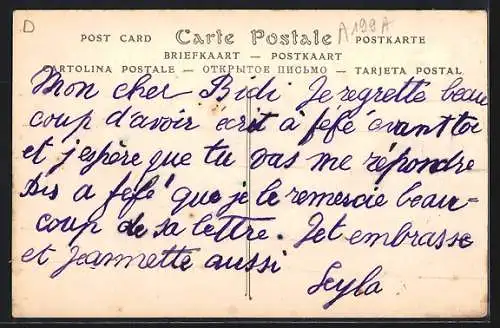 D
A199A
POST CARD Carte Postale POSTKARTE
BRIEFKAART — POSTKAART
CARTOLINA POSTALE — ОТКРЫТОЕ ПИСЬМО — TARJETA POSTAL
Mon cher Bidi Je regrette beau
coup d'avoir écrit à fefé avant toi
et j'espère que tu vas me répondre
Dis a fefé que je le remercie beau-
coup de sa lettre. Je t embrasse
et Jeannette aussi
Leyla.